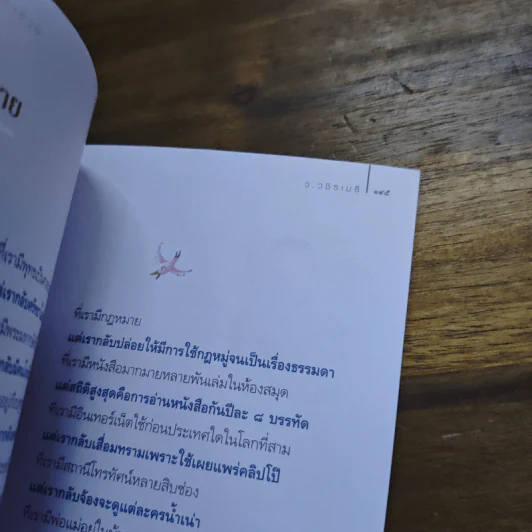 ว.วชิรเมธี
๑๙๕
ที่เรามีกฎหมาย
แต่เรากลับปล่อยให้มีการใช้กฎหมู่จนเป็นเรื่องธรรมดา
ที่เรามีหนังสือมากมายหลายพันเล่มในห้องสมุด
แต่สถิติสูงสุดคือการอ่านหนังสือกันปีละ ๘ บรรทัด
ที่เรามีอินเทอร์เน็ตใช้ก่อนประเทศใดในโลกที่สาม
แต่เรากลับเสื่อมทรามเพราะใช้เผยแพร่คลิปโป๊
ที่เรามีสถานีโทรทัศน์หลายสิบช่อง
แต่เรากลับจ้องจะดูแต่ละครน้ำเน่า
ที่เรามีพ่อแม่อยู่ใน